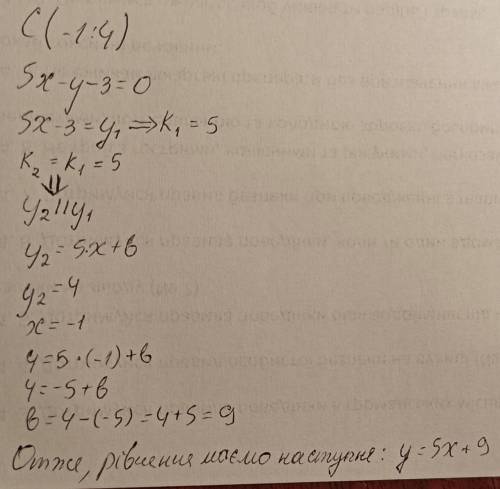 C(-1:4)
5x-y-3=0
5x-3=y₁⟹K₁=5
K₂=K₁=5
⇓
y₂||y₁
y₂=5·x+в
y₂=4
x=-1
4=5·(-1)+в
4=-5+в
в=4-(-5)=4+5=9
Отже, рівняння маємо наступне: y=5x+9